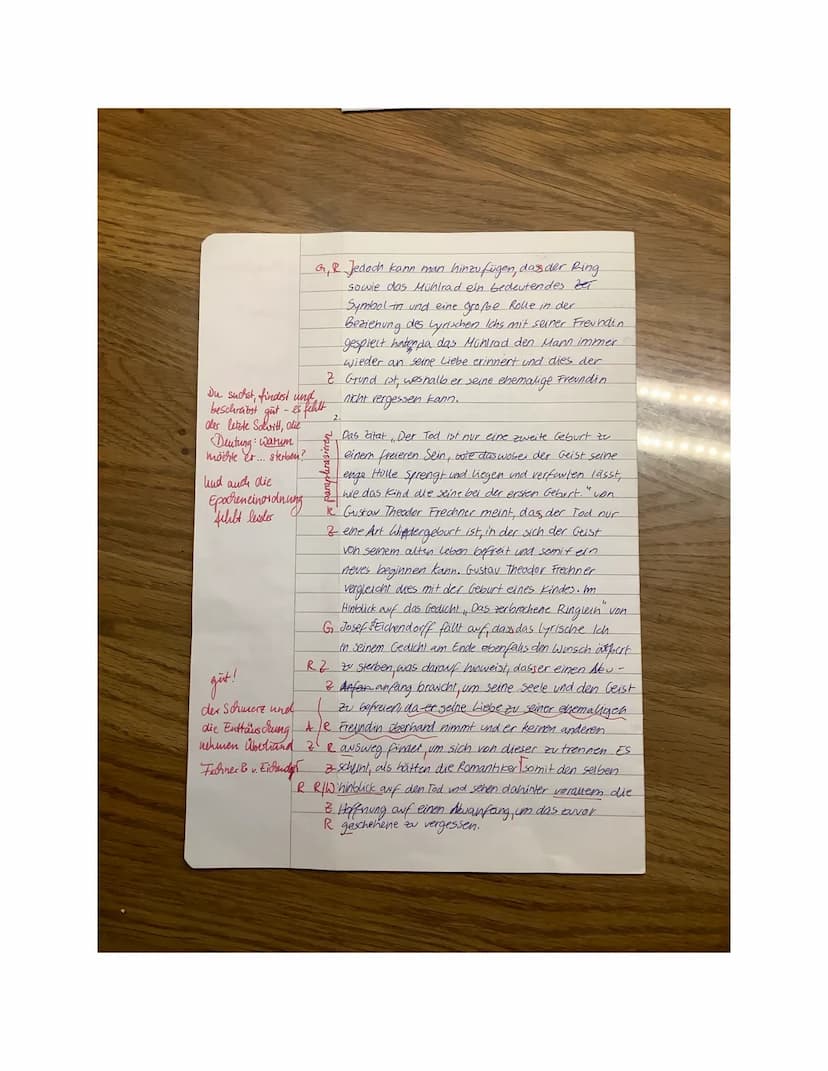 G, R Jedoch kann man hinzufügen, dass der Ring
sowie das Mühlrad ein bedeutendes
Symbol in und eine große Rolle in der
Beziehung des Lyrischen Ichs mit seiner Freundin
gespielt da das Mühlrad den Mann immer
wieder an seine Liebe erinnert und dies der
Z Grund ist, weshalb er seine ehemalige Freundin
nicht vergessen kann.
Du suchst, findest und
beschreibst gut – es fehlt
der letzte Schritt, die
Deutung: warum
möchte er... sterben?
Und auch die
Epocheneinordnung
fehlt leider
2.
paraphrasieren
Das Zitat „Der Tod ist nur eine zweite Geburt zu
einem freieren Sein, wobei der Geist seine
enge Hülle sprengt und liegen und verfaulen lässt,
wie das Kind die seine bei der ersten Geburt." von
R Gustav Theodor Frechner meint, dass der Tod nur
Z eine Art Wiedergeburt ist, in der sich der Geist
von seinem alten Leben befreit und somit ein
neues beginnen kann. Gustav Theodor Frechner
vergleicht dies mit der Geburt eines Kindes. Im
Hinblick auf das Gedicht „Das zerbrochene Ringlein" von
G Josef Eichendorff fällt auf, dass das lyrische Ich
in seinem Gedicht am Ende ebenfalls den Wunsch äußert
R Z zu sterben, was darauf hinweist, dass er einen Neu-
Z anfang braucht, um seine Seele und den Geist
zu befreien, da er seine Liebe zu seiner ehemaligen
A R Freundin überhand nimmt und er keinen anderen
Z R ausweg findet, um sich von dieser zu trennen. Es
Z scheint, als hätten die Romantiker somit den selben
R R/W hinblick auf den Tod und sehen dahinter vorallem die
Z Hoffnung auf einen Neuanfang, um das zuvor
R geschehene zu vergessen.
gut!
der Schmerz und
die Enttäuschung
nehmen Überhand
Fechner & v. Eichendorff